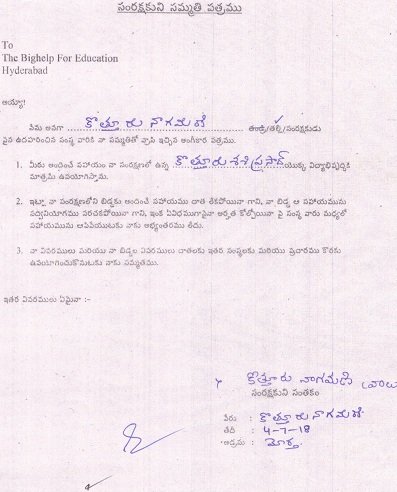 సంరక్షకుని సమ్మతి పత్రము
To
The Bighelp For Education
Hyderabad
అయ్యా!
నేను అనగా కొత్తూరు నాగమణి తండ్రి/తల్లి/సంరక్షకుడు
పైన ఉదహరించిన సంస్థ వారికి నా సమ్మతితో వ్రాసి ఇచ్చిన అంగీకార పత్రము.
1. మీరు అందించే సహాయం నా సంరక్షణలో ఉన్న కొత్తూరు శశి ప్రసాద్ యొక్క విద్యాభివృద్ధికి
మాత్రమే ఉపయోగిస్తాము.
2. ఇట్లా, నా సంరక్షణలోని బిడ్డకు అందించే సహాయము దాత లేకపోయినా గాని, నా బిడ్డ ఆ సహాయమును
సద్వినియోగము పరచకపోయినా గాని, ఇంకే విధముగానైనా అర్హత కోల్పోయినా పై సంస్థ వారు మధ్యలో
సహాయమును ఆపివేయుటకు నాకు అభ్యంతరము లేదు.
3. నా వివరములు మరియు నా బిడ్డల వివరములు దాతలకు ఇతర సంస్థలకు మరియు ప్రచారము కొరకు
ఉపయోగించుకొనుటకు నాకు సమ్మతము.
ఇతర వివరములు ఏమైనా :-
కొత్తూరు నాగమణి
సంరక్షకుని సంతకం
పేరు : కొత్తూరు నాగమణి
తేది : 4-7-18
అడ్రసు :